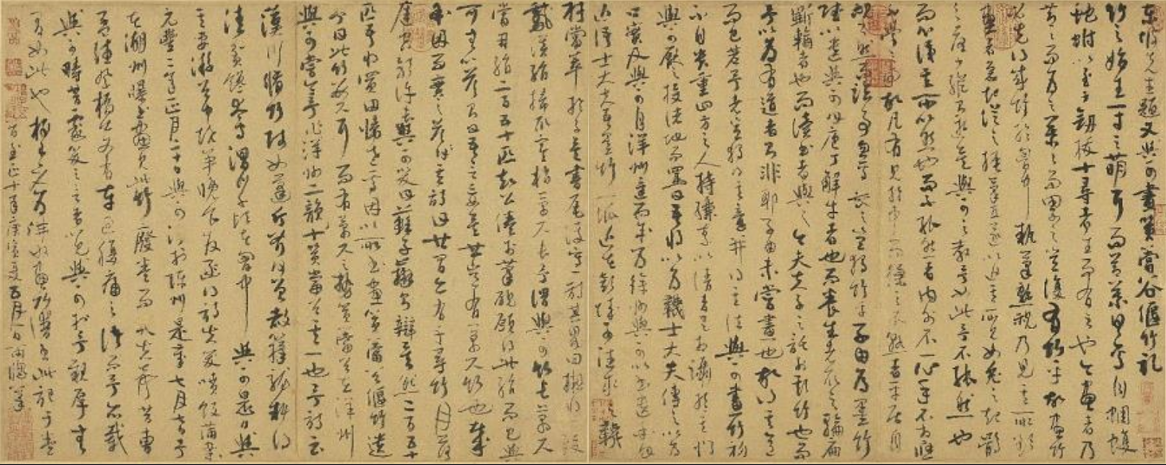 東坡先生題文與可畫篔簹谷偃竹記
竹之始生一寸之萌耳而節葉具焉自蜩腹
蛇蚹以至于劍拔十尋者生而有之也今畫者乃
節節而為之葉葉而累之豈復有竹乎故畫竹
必先得成竹於胸中執筆熟視乃見其所欲
畫者急起從之振筆直遂以追其所見如兔起鶻
落少縱則逝矣與可之教予如此予不能然也
而心識其所以然也而不能然者內外不一心手不相應
不學之過也故凡有見於中而操之不熟者平居自
視了然而臨事忽焉喪之豈獨竹乎子由為墨竹
賦以遺與可曰庖丁解牛者也而養生者取之輪扁
斲輪者也而讀書者與之今夫夫子之託於斯竹也而
予以為有道者則非耶子由未嘗畫也故得其意
而已若予者豈獨得其意并得其法與可畫竹初
不自貴重四方之人持縑素以請者足相躡於其門
與可厭之投諸地而罵曰吾將以為韈士大夫傳之以為
口實及與可自洋州還而余為徐州與可以書遺余曰
近語士大夫吾墨竹一派近在彭城可往求之韈
材當萃於子矣書尾復寫一詩其略曰擬將一段
鵝溪絹掃取寒梢萬尺長予謂與可竹長萬尺
當用絹二百五十匹知公倦於筆硯願得此絹而已與
可無以答則曰吾言妄矣世豈有萬尺竹也哉
余因而實之答其詩曰世間亦有千尋竹月落
庭空影許長與可笑曰蘇子辯則辯矣然二百五十
匹吾將買田歸老焉因以所畫篔簹谷偃竹遺
予曰此竹數尺耳而有萬尺之勢篔簹谷在洋州
與可嘗令予作洋州三十詠篔簹谷其一也予詩云
漢川脩竹賤如蓬斤斧何曾赦籜龍料得
清貧饞太守渭濱千畝在胸中與可是日與
其妻游谷中燒筍晚食發函得詩失笑噴飯滿案
元豐二年正月二十日與可沒於陳州是歲七月七日予
在湖州曝書畫見此竹廢卷而哭失聲昔曹
孟德祭橋公文有車過腹痛之語而予亦載
與可疇昔戲笑之言者以見與可於予親厚無
間如此也
至正十年庚寅歲夏五月一日